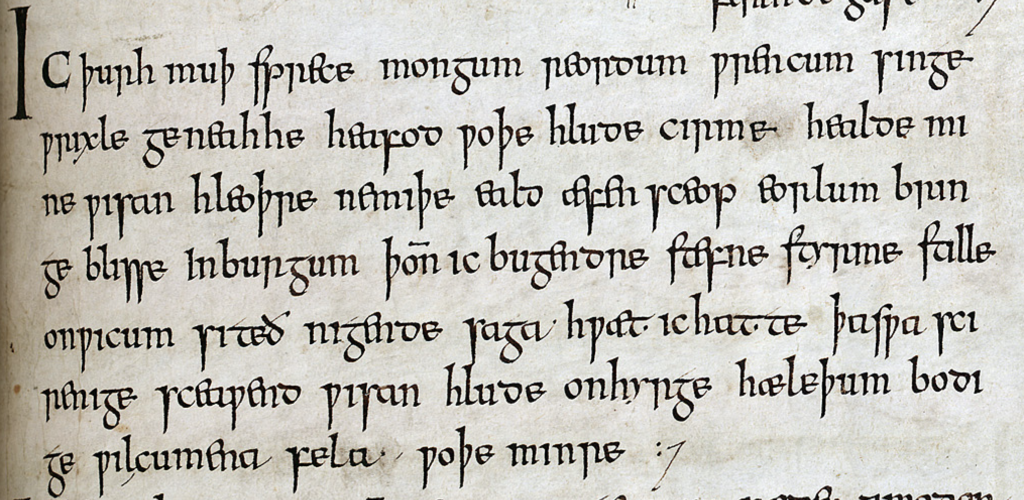 IC þurh muþ sprece mongum reordum ƿrencum singe
ƿrixle geneahhe heafod ƿoþe hlude cirme healde mi
ne ƿisan hleoþre nemiþe eald æfen sceop eorlum brin
ge blisse Inburgum þon̄ ic bugendre stefne styrme stille
onƿicum siteð nigende saga hƿæt ic hatte þasƿa sci
renige sceaƿend ƿisan hlude onhyrge hæleþum bodi
ge ƿilcumena fela ƿoþe minre :7